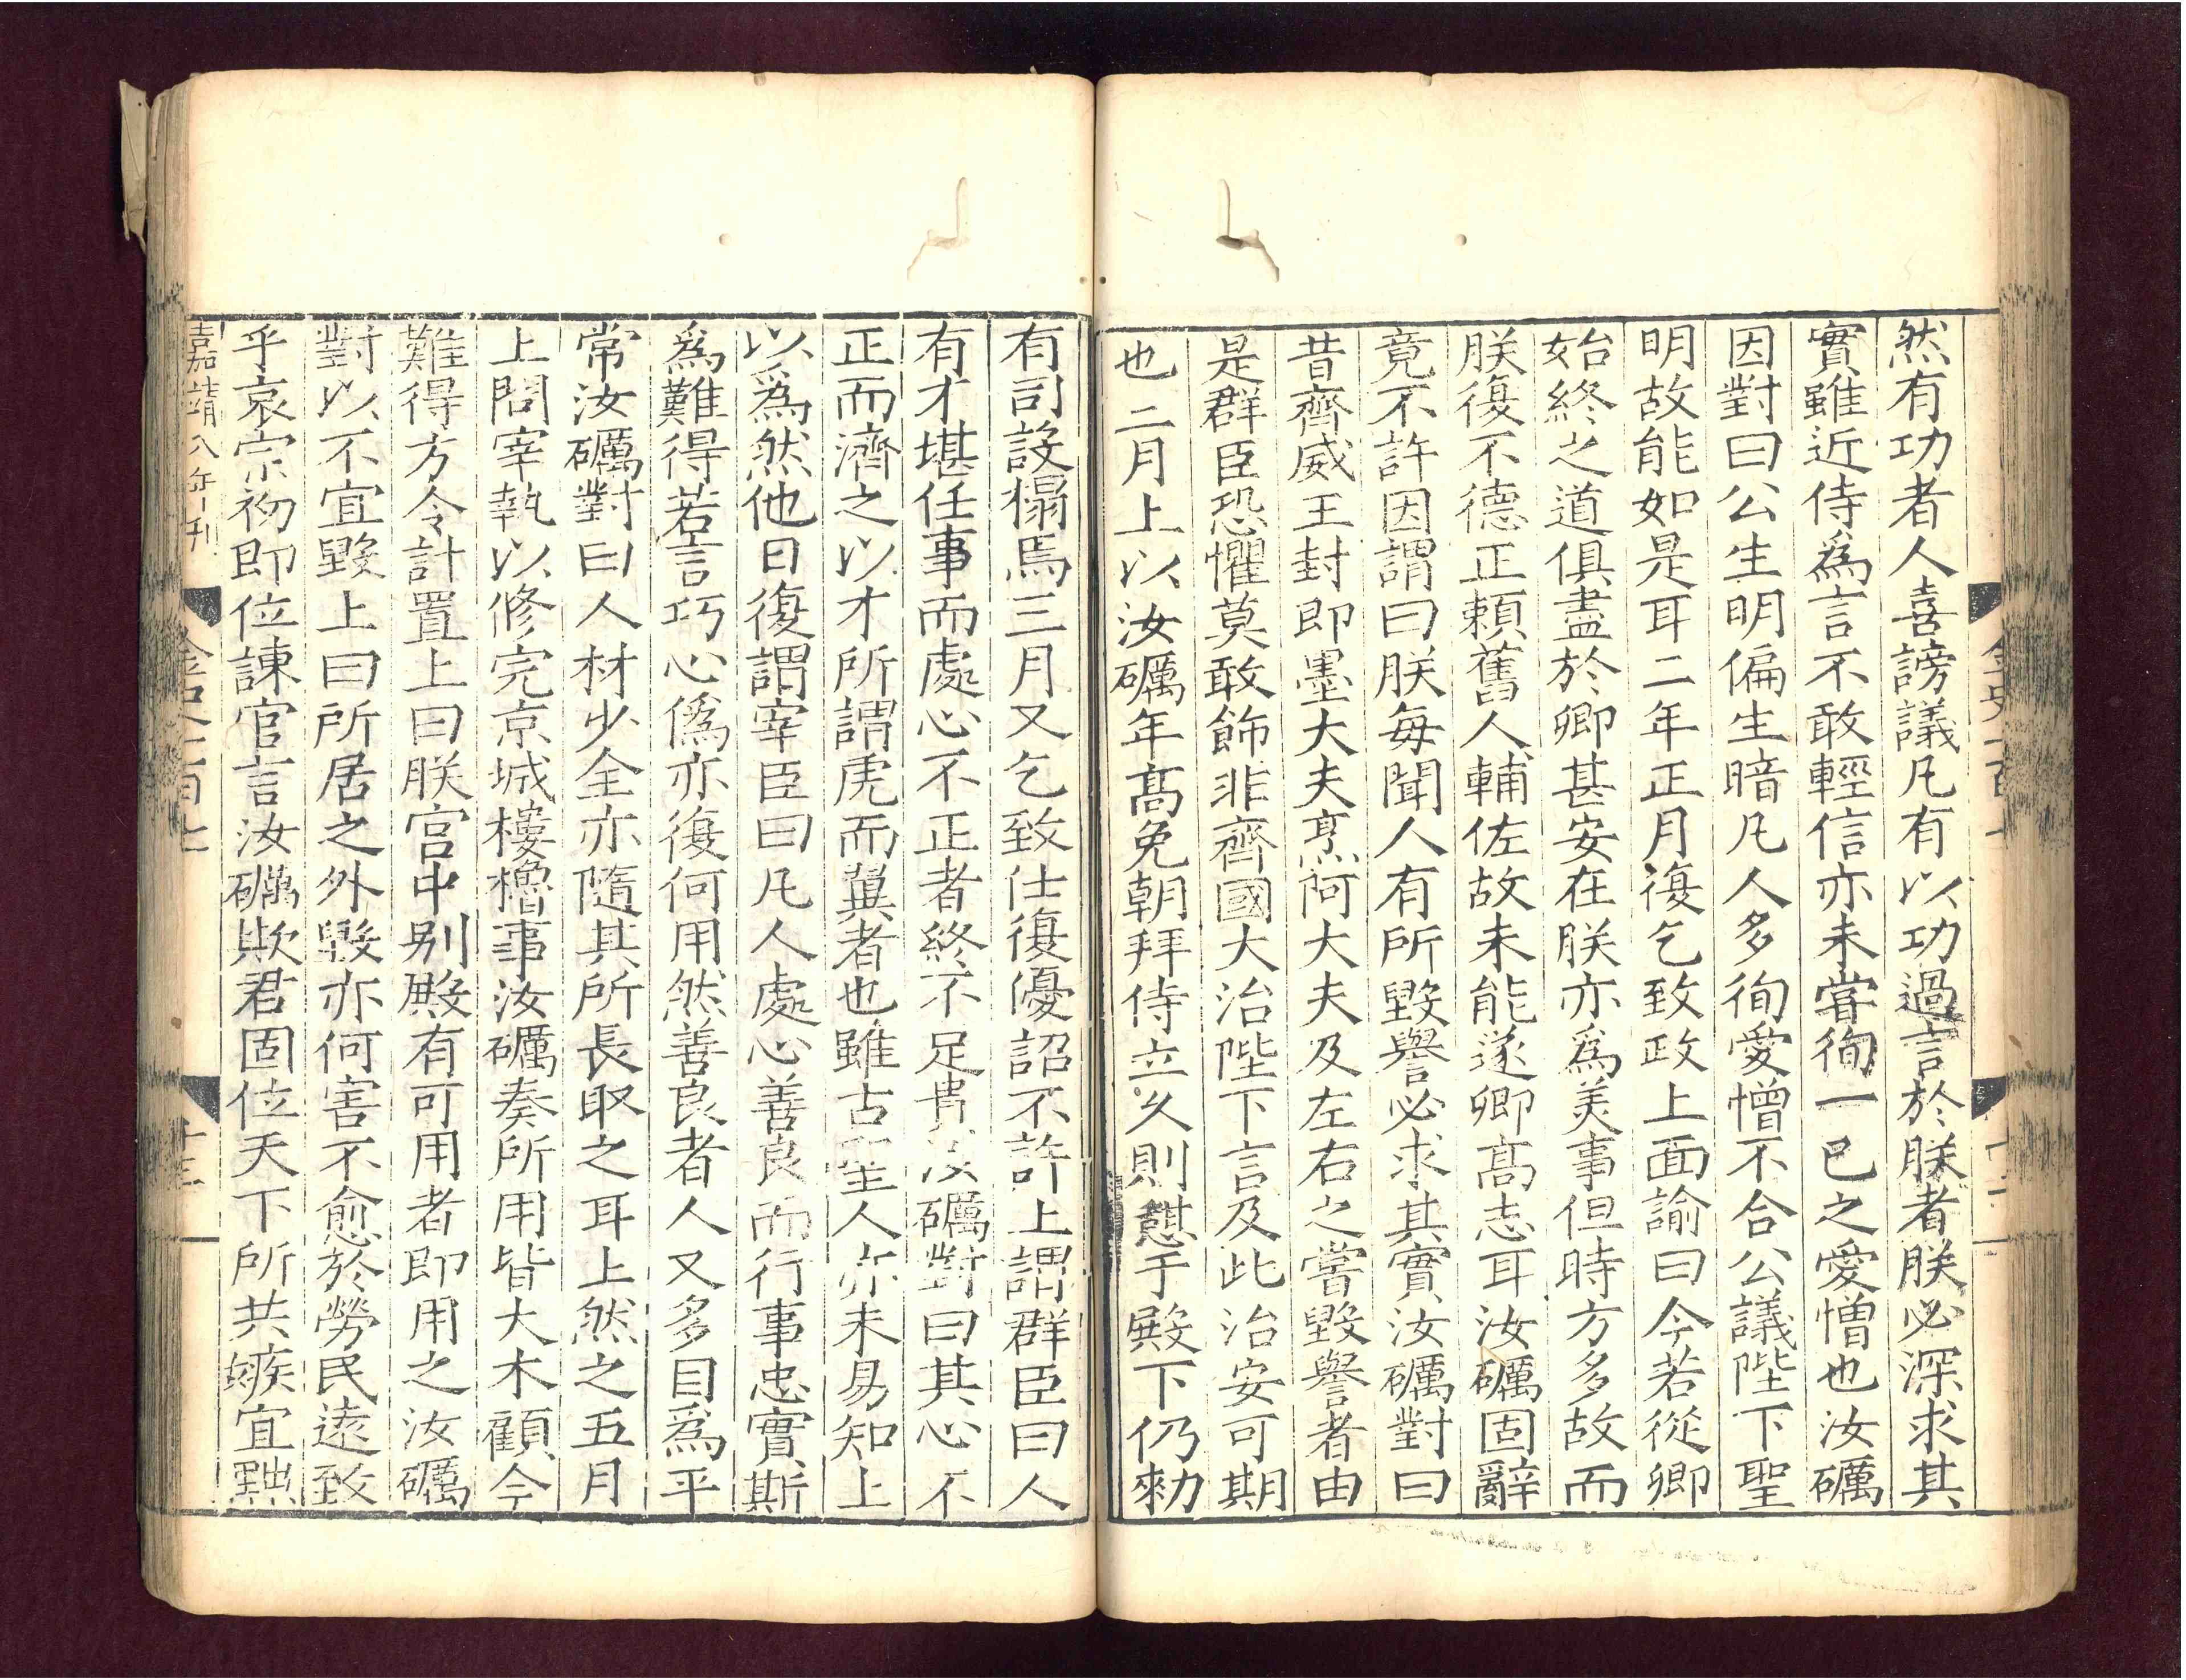 然有功者人喜謗議凡有以功過言於朕者朕必深求其
實雖近侍爲言不敢輕信亦未嘗徇一己之愛憎也汝礪
因對曰公生明偏生暗凡人多徇愛憎不合公議陛下聖
明故能如是耳二年正月復乞致政上面諭曰今若從卿
始終之道俱盡於卿甚安在朕亦爲美事但時方多故而
朕復不德正賴舊人輔佐故未能遂卿高志耳汝礪固辭
竟不許因謂曰朕每聞人有所毀譽必求其實汝礪對曰
昔齊威王封即墨大夫烹阿大夫及左右之嘗毀譽者由
是群臣恐懼莫敢飾非齊國大治陛下言及此治安可期
也二月上以汝礪年高免朝拜侍立久則憩于殿下仍勑
有司設榻焉三月又乞致仕復優詔不許上謂群臣曰人
有才堪任事而處心不正者終不足貴汝礪對曰其心不
正而濟之以才所謂虎而翼者也雖古聖人亦未易知上
以爲然他日復謂宰臣曰凡人處心善良而行事忠實斯
爲難得若言巧心僞亦復何用然善良者人又多目爲平
常汝礪對曰人材少全亦隨其所長取之耳上然之五月
上問宰執以修完京城樓櫓事汝礪奏所用皆大木顧今
難得方令計置上曰朕宮中別殿有可用者即用之汝礪
對以不宜毀上曰所居之外毀亦何害不愈於勞民遠致
乎哀宗初即位諫官言汝礪欺君固位天下所共嫉宜黜
嘉靖八年刊
金史一百七
十三